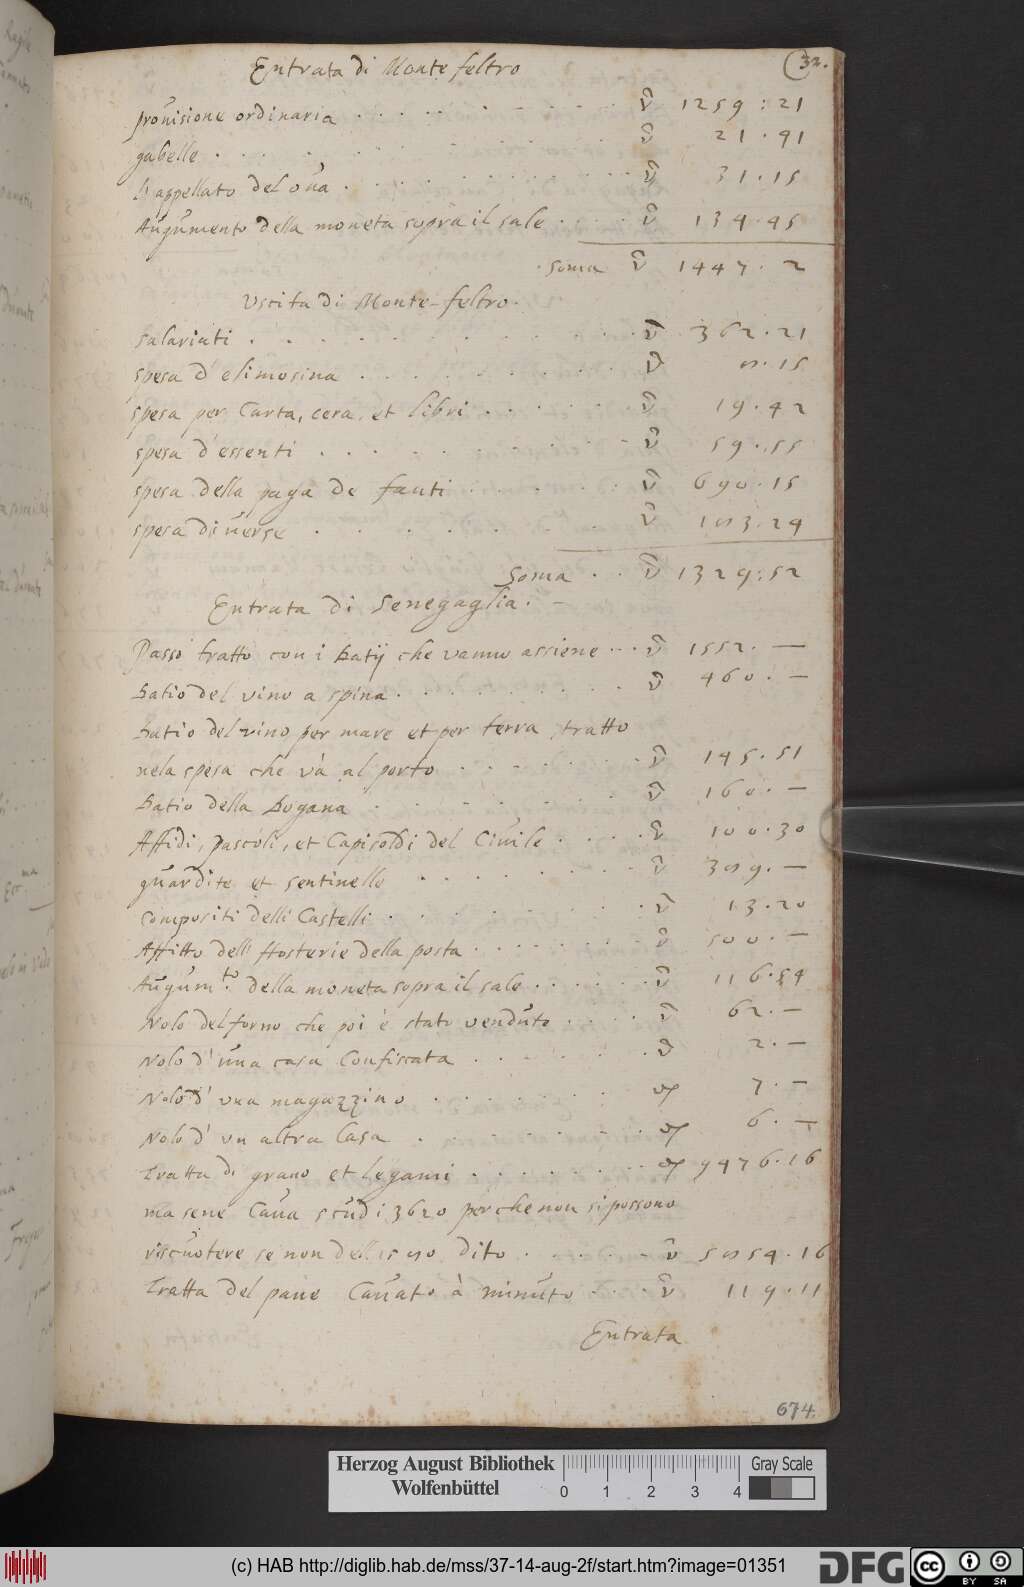 Entrata di Monte feltro
32.
prouisione ordinaria . . . . . ▽ 1259 : 21
gabelle . . . . . ▽ 21 . 91
l'appellato del oua . . . . . ▽ 31 . 15
Augumento della moneta sopra il sale . . . . ▽ 134 . 45
soma ▽ 1447 . 2
Vscita di Monte-feltro.
salariati . . . . . ▽ 362 . 21
spesa d'elimosina . . . . . ▽ 15
spesa per Carta, cera, et libri . . . . . ▽ 19 . 42
spesa d'essenti . . . . . ▽ 59 . 55
spesa della paga de fanti . . . . . ▽ 690 . 15
spesa diuerse . . . . . ▽ 24
Soma . . ▽ 1329 : 52
Entrata di Senegaglia. –
Passo tratto con i Datij che vanno assiene . . . ▽ 1552 . —
Datio del vino a spina . . . . . ▽ 460 . —
Datio del vino per mare et per terra tratto
nela spesa che và al porto . . . . . ▽ 145 . 51
Datio della Dogana . . . . . ▽ 160 . —
Affidi, pascoli, et Capisoldi del Ciuile . . . . ▽ 100 . 30
guardite et sentinelle . . . . . ▽ —
compositi delli Castelli . . . . . ▽ 13 . 20
Affitto dell' Hosterie della posta . . . . . ▽ 500 . —
Augum.to della moneta sopra il sale . . . . . ▽ 116 . 54
Nolo del forno che poi è stato venduto . . . . ▽ 62 . —
Nolo d'una casa Confiscata . . . . . ▽ 2 . —
Nolo d'vna magazzino . . . . . ▽ 7 . —
Nolo d'vn altra Casa . . . . . ▽ 6 . —
Tratta di grano et legami . . . . . ▽ 9476 . 16
ma sene Caua scudi 3620 perche non si possono
riscuotere se non dell dito . . . . . ▽ 54 . 16
Tratta del pane Cauato à minuto . . . . ▽ 119 . 11
Entrata
674.
Herzog August Bibliothek
Wolfenbüttel
0 1 2 3 4
Gray Scale
(c) HAB http://diglib.hab.de/mss/37-14-aug-2f/start.htm?image=01351
DFG
cc BY SA